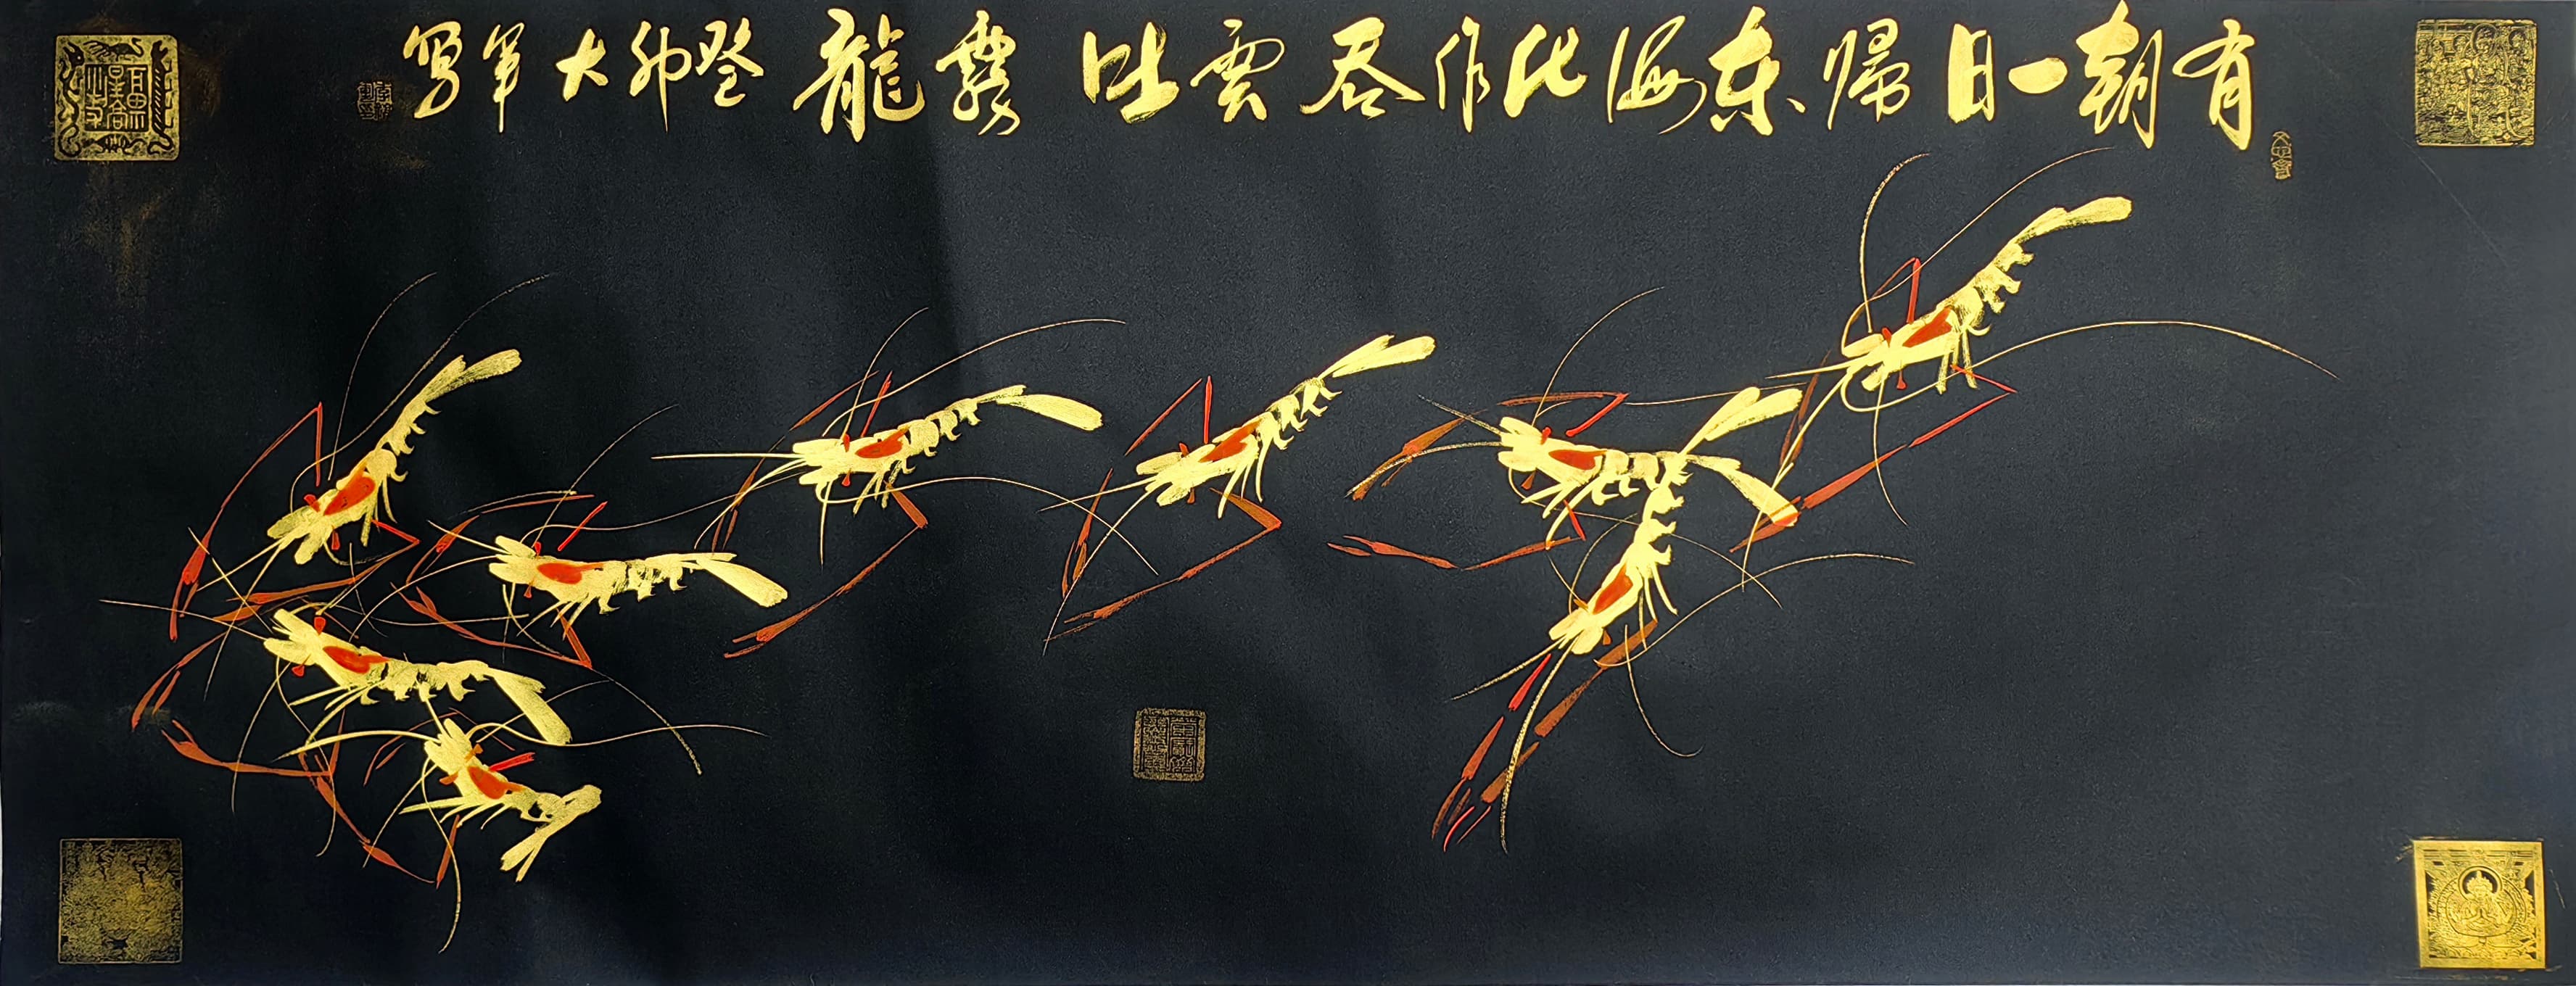 有朝一日帰东海化作吞雲吐霧龍癸卯大军写